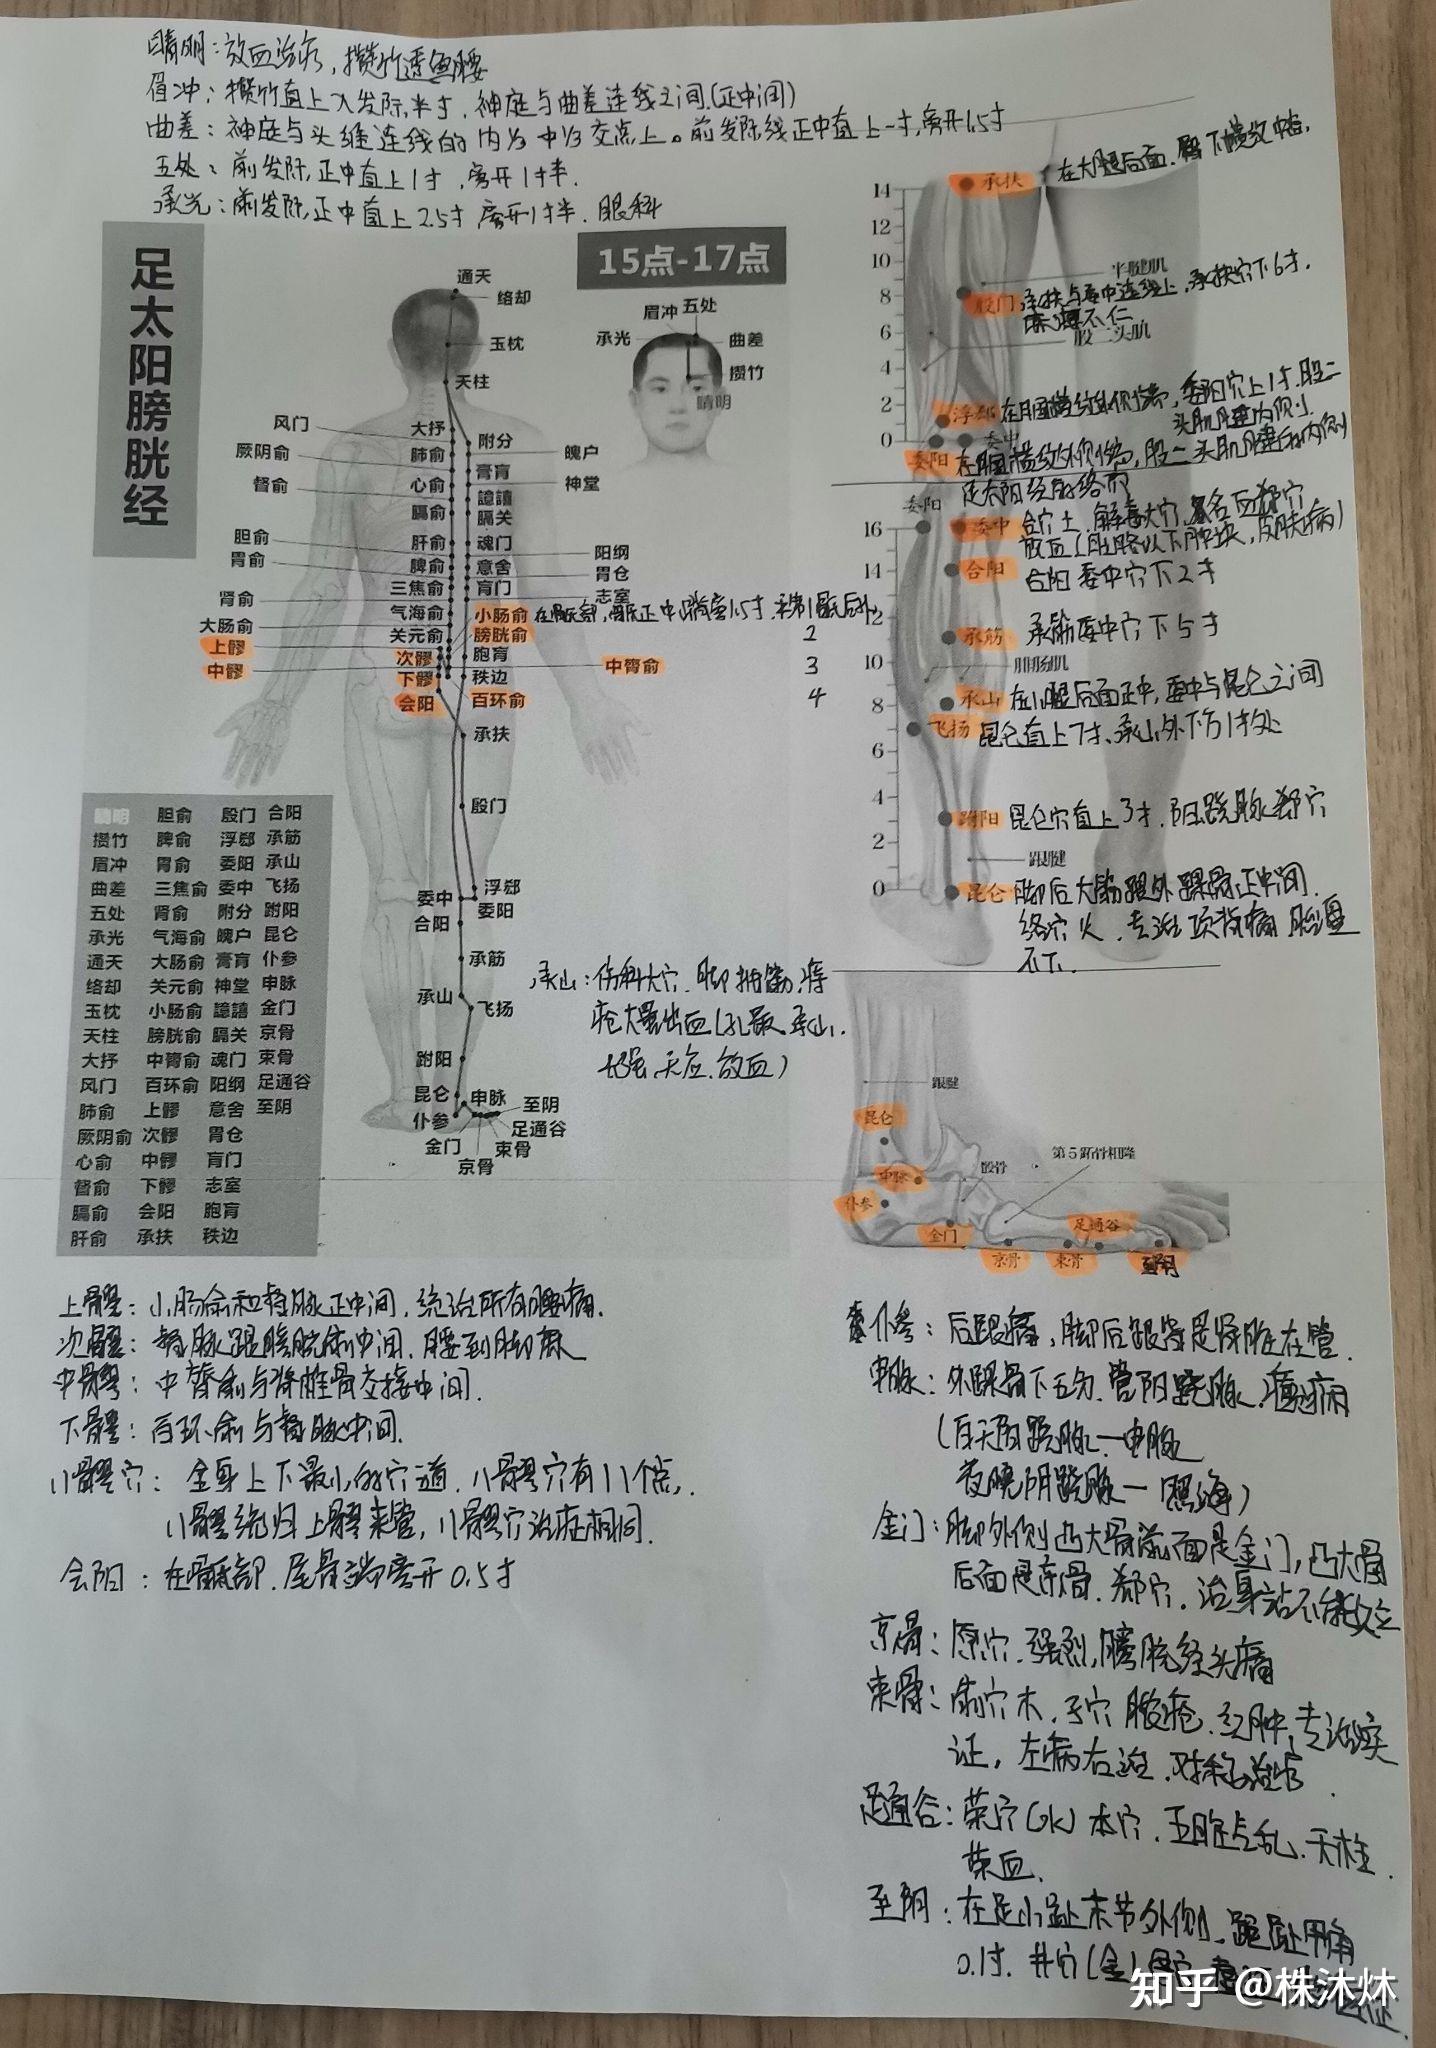 睛明：放血治疗，攒竹透鱼腰
眉冲：攒竹直上入发际半寸，神庭与曲差连线之间（正中间）
曲差：神庭与头维连线的内⅓中⅓交点上。前发际线正中直上一寸，离开1.5寸
五处：前发际正中直上1寸，离开1寸半.
承光：前发际正中直上2.5寸 离开1寸半. 眼科
足太阳膀胱经
15点-17点
通天
络却
玉枕
天柱
眉冲 五处
承光
曲差
攒竹
睛明
风门
大抒
附分
魄户
厥阴俞
肺俞
膏肓
督俞
心俞
神堂
譩譆
膈俞
膈关
胆俞
肝俞
魂门
阳纲
胃俞
脾俞
意舍
胃仓
三焦俞
肓门
肾俞
志室
气海俞
小肠俞 在骶部，骶正中嵴旁1.5寸，平第1骶后孔
大肠俞
关元俞
膀胱俞
2
上髎
次髎
胞肓
中髎
中膂俞
3
下髎
秩边
会阳
百环俞
4
承扶
殷门
委中
浮郄
委阳
合阳
承筋
承山
飞扬
跗阳
昆仑
申脉
至阴
仆参
足通谷
金门
束骨
京骨
承山：伤科大穴. 脚抽筋，痔
疮大量出血（孔最、承山、
长强、天应、放血）
睛明 胆俞 殷门 合阳
攒竹 脾俞 浮郄 承筋
眉冲 胃俞 委阳 承山
曲差 三焦俞 委中 飞扬
五处 肾俞 附分 跗阳
承光 气海俞 魄户 昆仑
通天 大肠俞 膏肓 仆参
络却 关元俞 神堂 申脉
玉枕 小肠俞 譩譆 金门
天柱 膀胱俞 膈关 京骨
大抒 中膂俞 魂门 束骨
风门 百环俞 阳纲 足通谷
肺俞 上髎 意舍 至阴
厥阴俞 次髎 胃仓
心俞 中髎 肓门
督俞 下髎 志室
膈俞 会阳 胞肓
肝俞 承扶 秩边
上髎：小肠俞和督脉正中间，统治所有腰痛.
次髎：督脉跟膀胱俞中间，腰到脚麻
中髎：中膂俞与脊椎骨交接中间.
下髎：百环俞与督脉中间.
八髎穴：全身上下最小的穴道，八髎穴有八个点，
八髎统归上髎来管，八髎穴治症相同.
会阳：在骶部，尾骨端旁开0.5寸
14
12
10
8
6
4
2
0
承扶 在大腿后面，臀下横纹中央，
半腱肌
殷门 承扶与委中连线上，承扶穴下6寸.
麻痹不仁
股二头肌
浮郄 在腘横纹外侧端，委阳穴上1寸，股二
头肌腱内侧
委中
委阳 在腘横纹外侧端，股二头肌腱的内侧
足太阳经的络
16
14
12
10
8
6
4
2
0
委阳
委中 合穴土，解毒大穴，又名血郄穴
放血（胳以下肿块，皮肤病）
合阳 合阳 委中穴下2寸
承筋 承筋委中穴下5寸
腓肠肌
承山 在小腿后面正中，委中与昆仑之间
飞扬 昆仑直上7寸、承山外下方1寸处
跗阳 昆仑穴直上3寸. 阳跷脉郄穴
跟腱
昆仑 脚后大筋跟外踝骨正中间.
络穴火. 专治项背痛 胎
不下.
跟腱
昆仑
申脉
骰骨
第5跖骨粗隆
仆参
金门
足通谷
京骨
束骨
至阴
仆参：后跟痛，脚后跟等是肾脏在管.
申脉：外踝骨下五分. 管阳跷脉. 癫痫
（白天阳跷脉—申脉
夜晚阴跷脉—照海）
金门：脚外侧凸大骨前面是金门，凸大骨
后面是京骨. 郄穴. 治身站不能久立
京骨：原穴. 强烈，膀胱经头痛
束骨：俞穴木. 子穴 疮. 红肿，专治实
证，左病右治，对称治疗.
足通谷：荥穴（水）本穴. 五脏气乱、天柱.
荥血.
至阴：在足小趾末节外侧，距趾甲角
0.1寸. 井穴（金）
知乎 @株沐烌